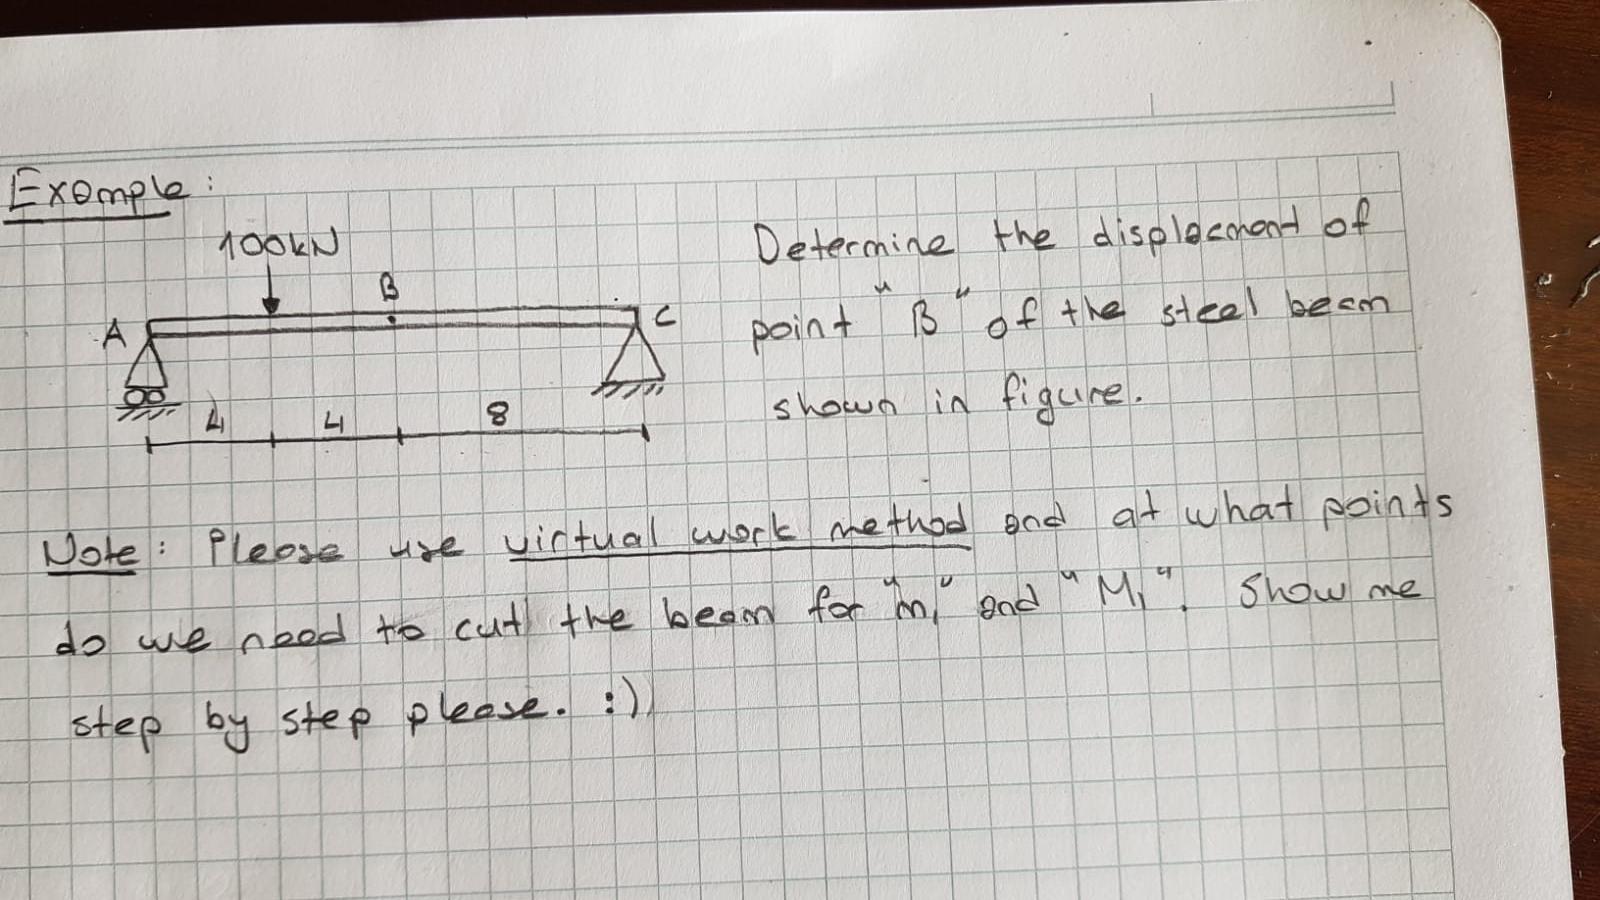 Example:
100kN
B
A
C
4 4 8
Determine the displacmont of
point "B" of the steel beam
shown in figure.
Note: Please use virtual work method and at what points
do we need to cut the beam for "m₁" and "M₁". Show me
step by step please. :))